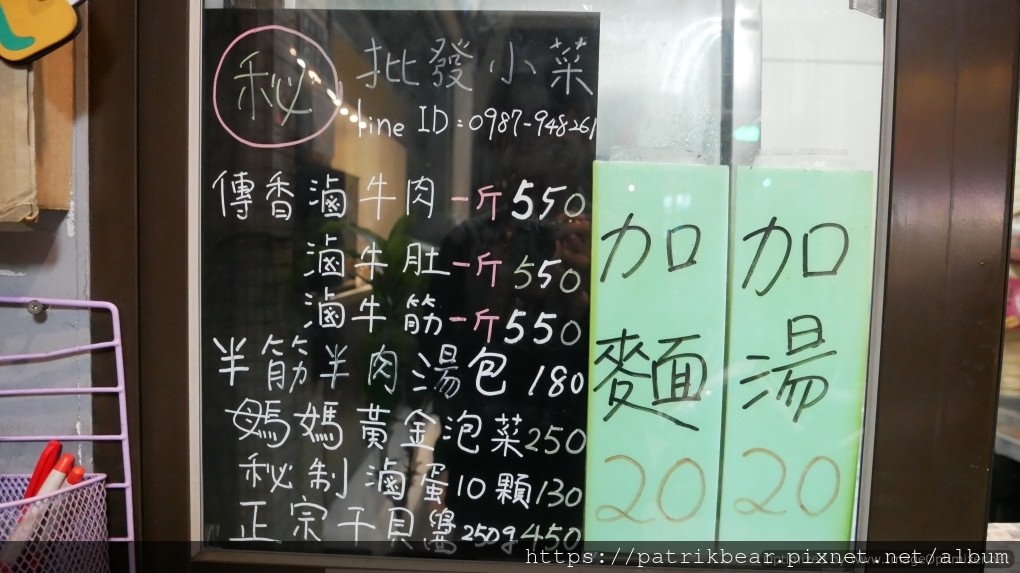 秘 批發小菜
line ID:0987-948261
傳香滷牛肉一斤550
滷牛肚一斤550
滷牛筋一斤550
半筋半肉湯包 180
媽媽黃金泡菜250
秘制滷蛋10顆130
正宗干貝醬250g450
加麵20
加湯20
https://patrikbear.pixnet.net/album